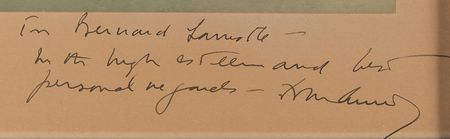 To Bernard
with high esteem and best
personal regards –